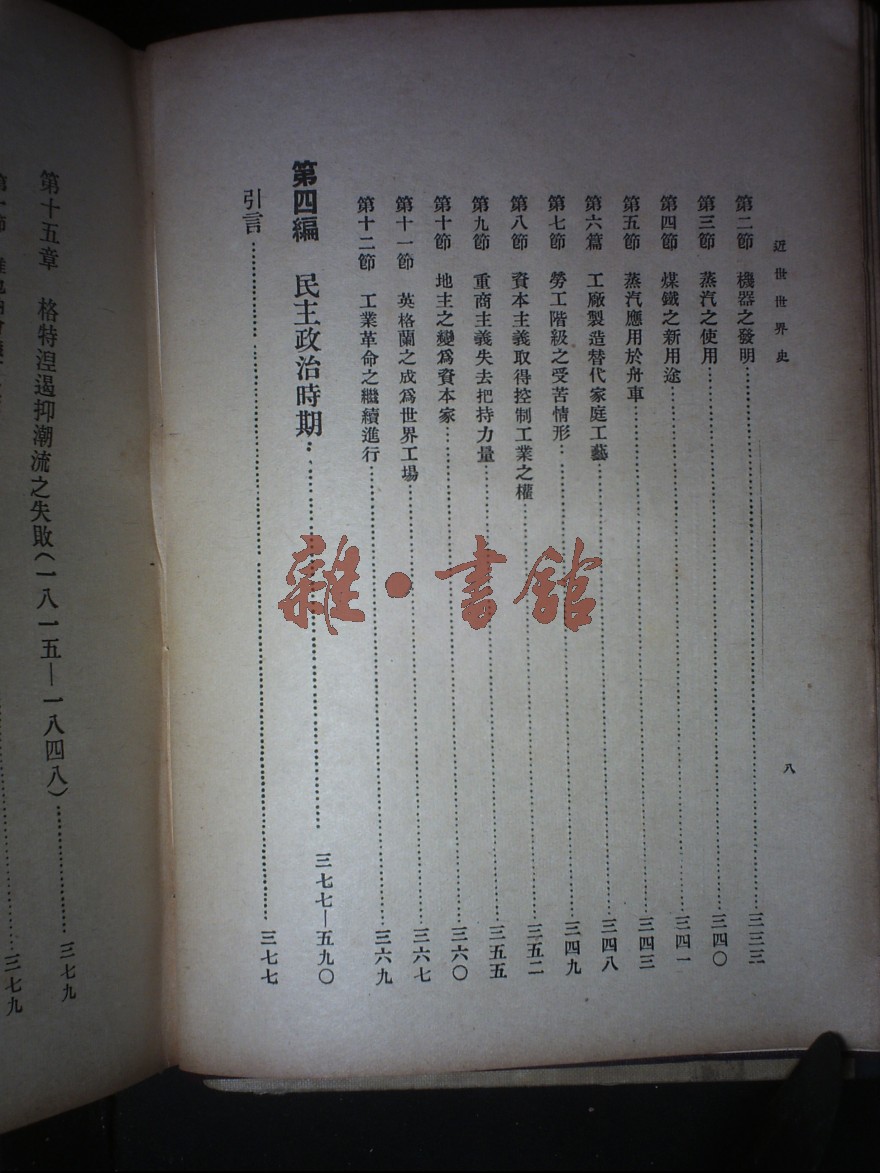 近世世界史
八
第二節 機器之發明 三三三
第三節 蒸汽之使用 三四〇
第四節 煤鐵之新用途 三四一
第五節 蒸汽應用於舟車 三四三
第六篇 工廠製造替代家庭工藝 三四八
第七節 勞工階級之受苦情形 三四九
第八節 資本主義取得控制工業之權 三五二
第九節 重商主義失去把持力量 三五五
第十節 地主之變爲資本家 三六〇
第十一節 英格蘭之成爲世界工場 三六七
第十二節 工業革命之繼續進行 三六九
第四編 民主政治時期 三七七—五九〇
引言 三七七
第十五章 格特涅遏抑潮流之失敗(一八一五—一八四八) 三七九
三七九
雜·書館